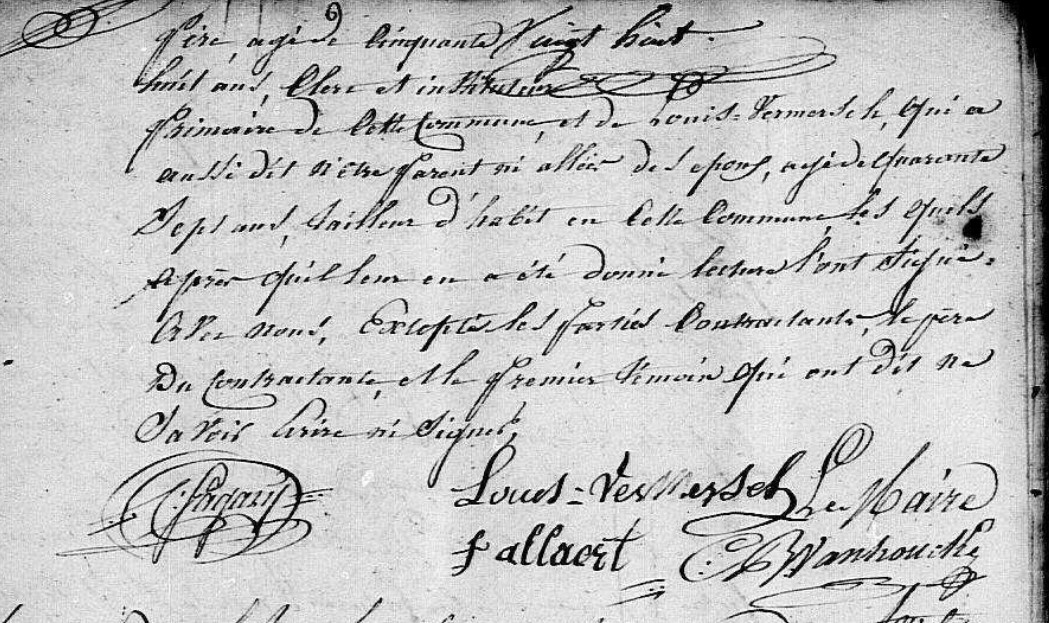 Père, agé de Cinquante Vingt huit
huit ans, Clerc et instituteur
Primaire de Cette Commune, et de Louis Vermersch, qui a
aussi dit n'être Parent ni alliée des epoux, agé de quarante
Sept ans, tailleur d'habit en Cette Commune les quels
après qu'il leur en a été donné lecture l'ont signé
avec nous, Excepté les Parties Contractante, le père
Du Contractante, et le Premier témoin qui ont dit ne
Savoir Ecrire ni Signer,
Louis Vermersch Le Maire
fallaert Wanhoucke